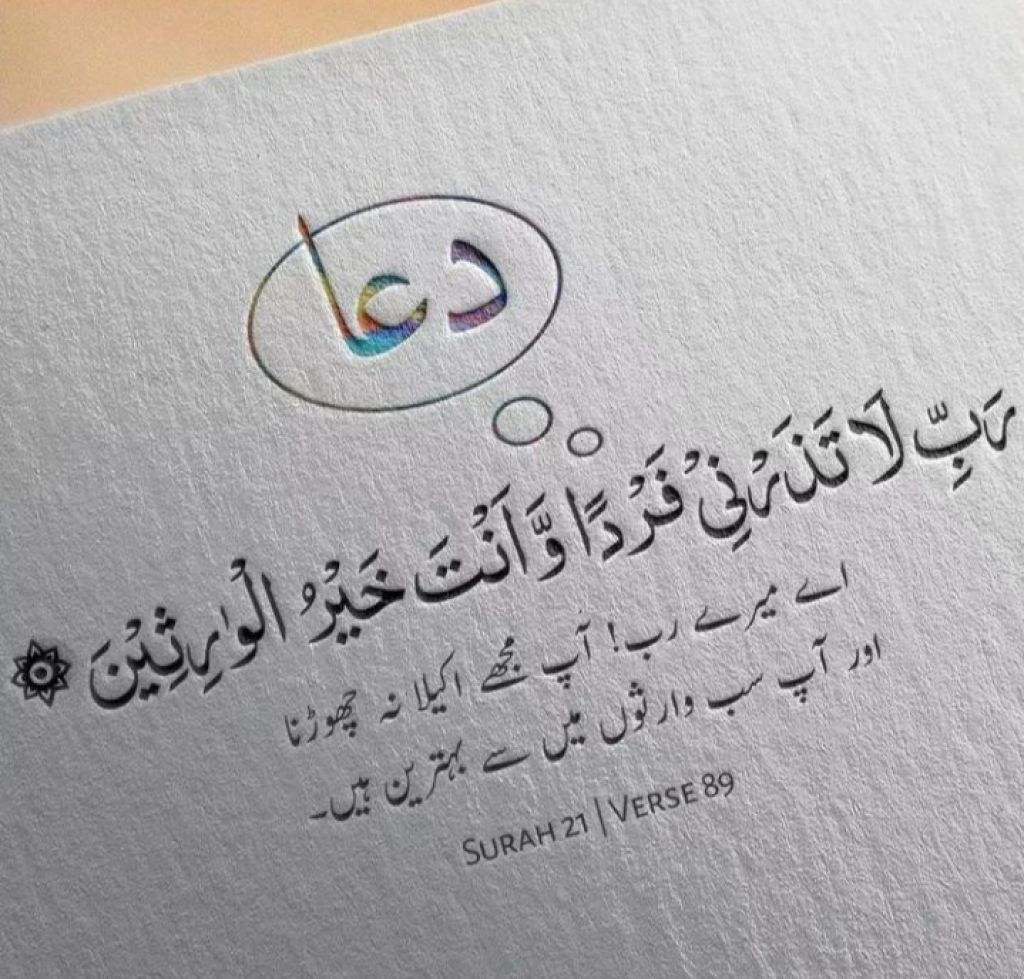 دعا
رَبِّ لَا تَذَرْنِیْ فَرْدًا وَّاَنْتَ خَیْرُ الْوٰرِثِیْنَ
اے میرے رب! آپ مجھے اکیلا نہ چھوڑنا
اور آپ سب وارثوں میں سے بہترین ہیں۔
SURAH 21 | VERSE 89